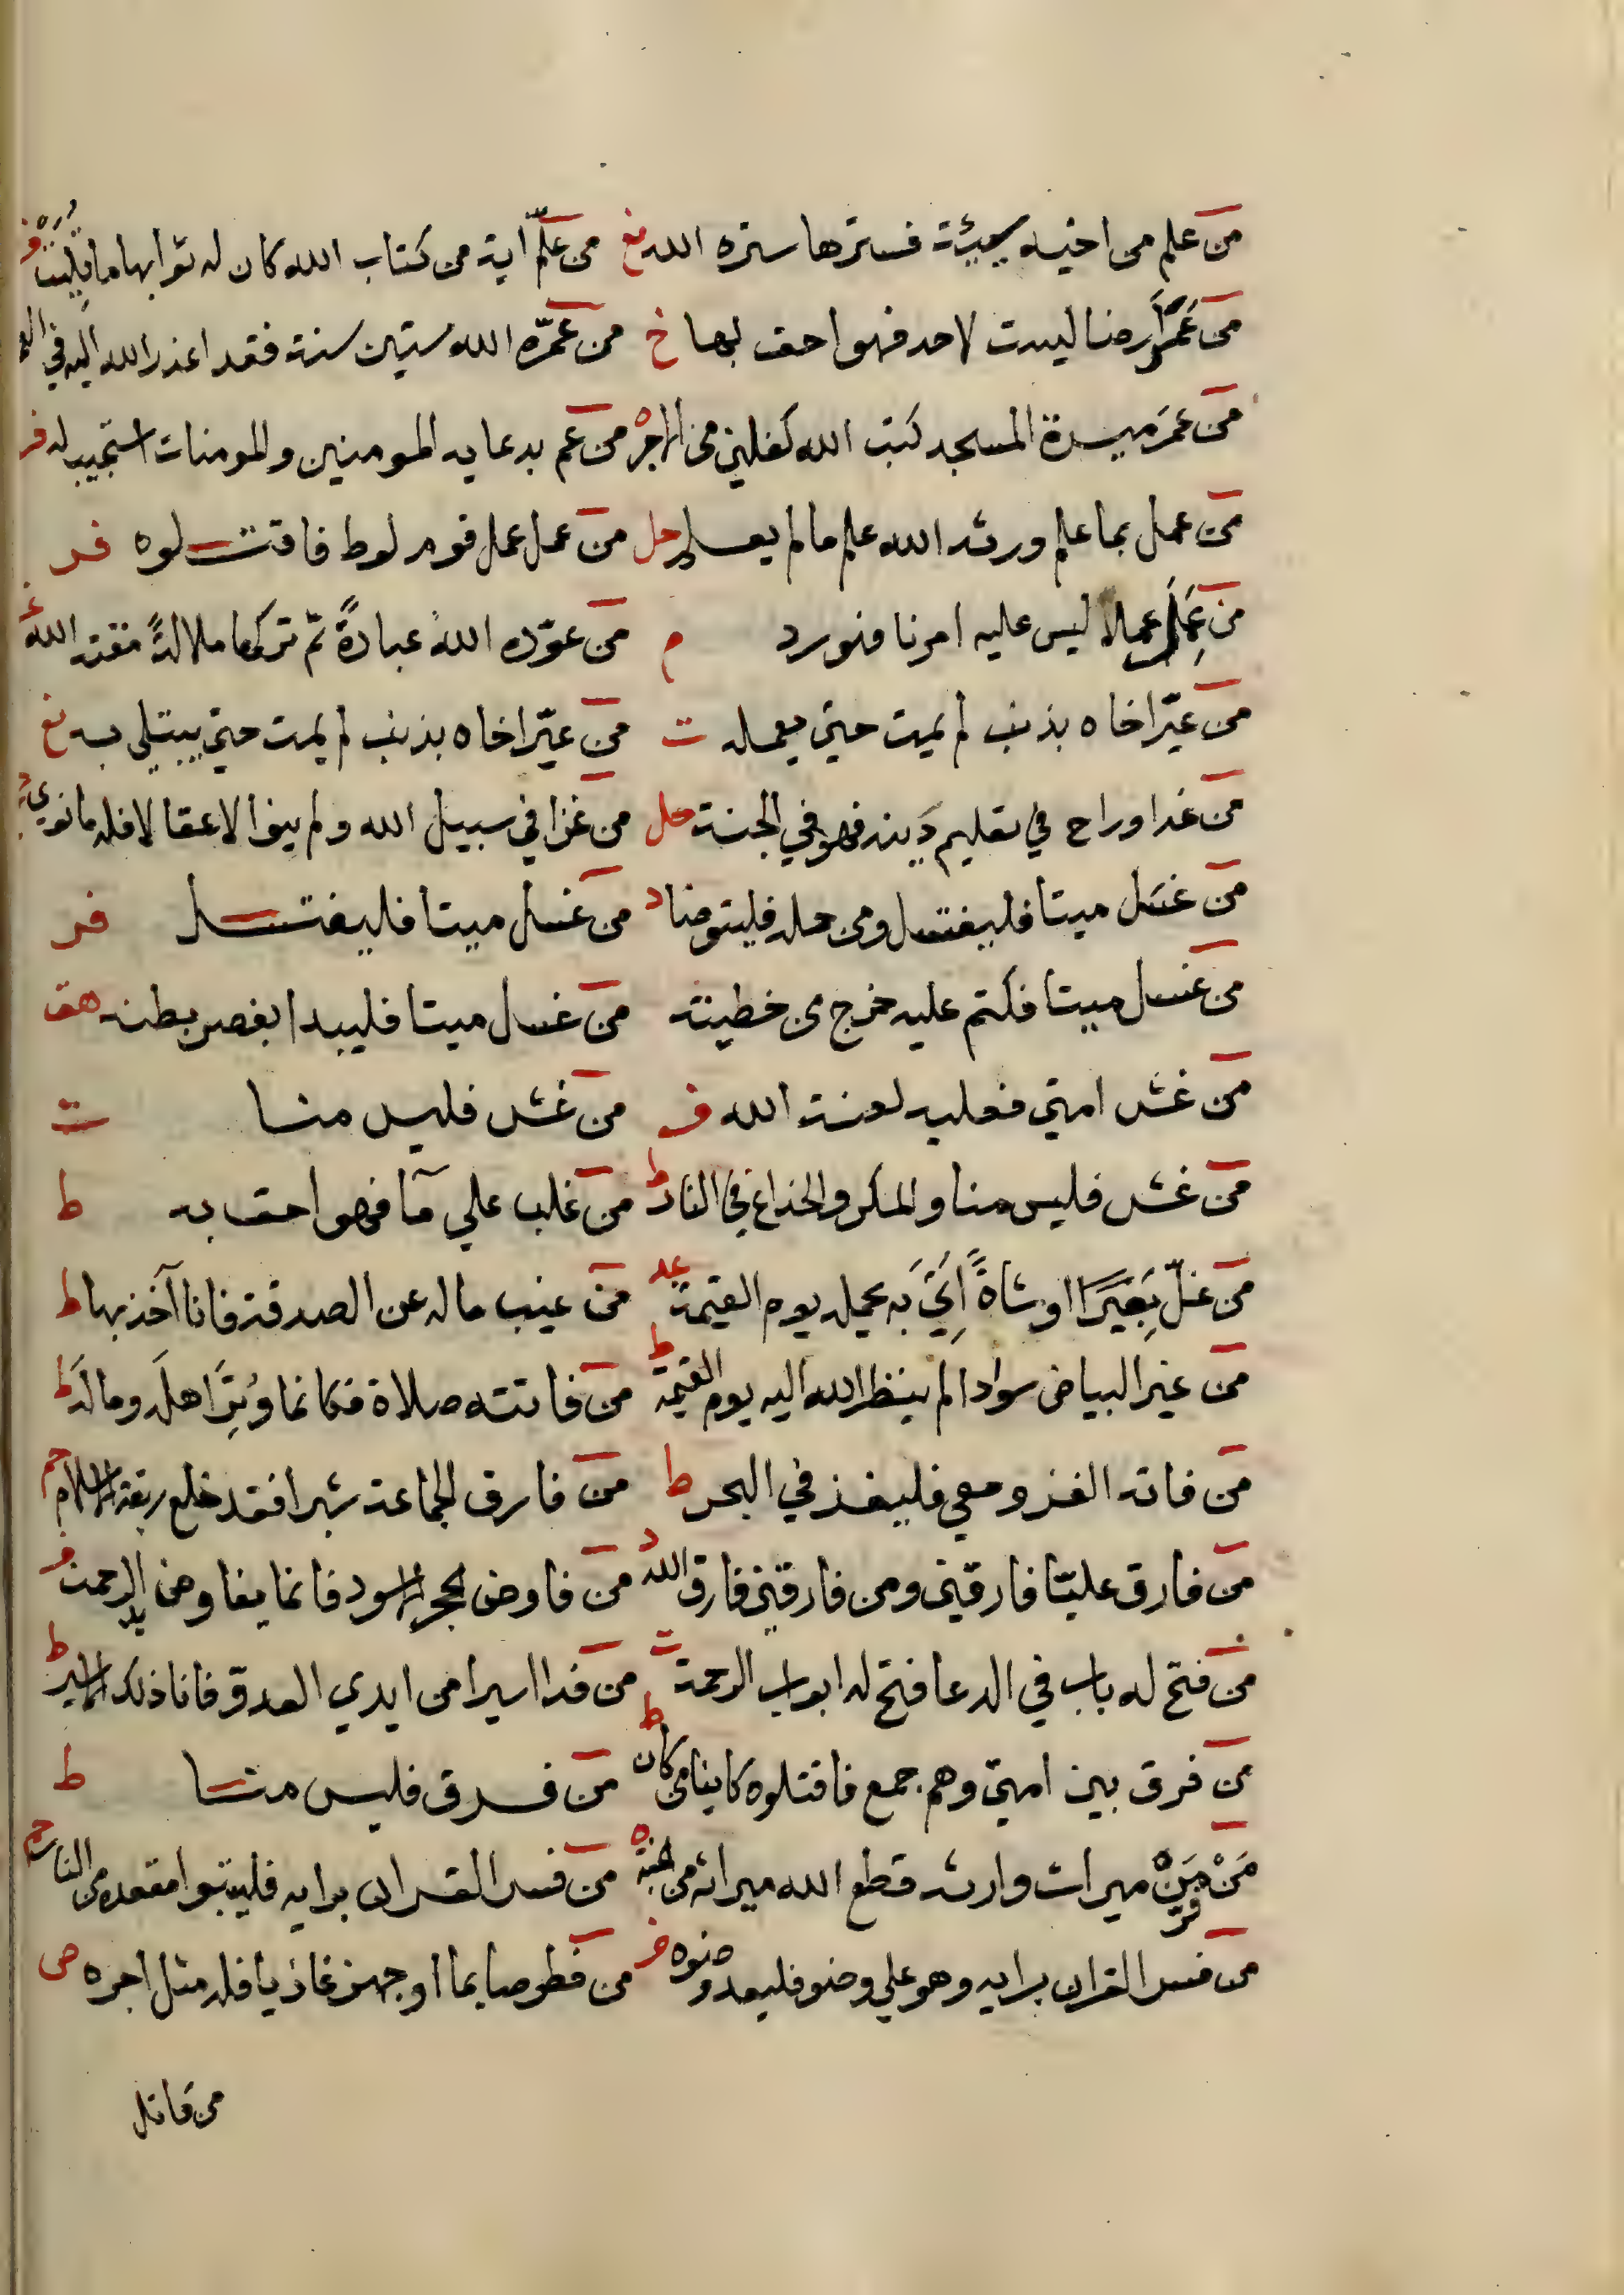 من علم من اخيه سيئة فسترها ستره الله نع من علّم اية من كتاب الله كان له ثوابها ما تليت
من عَمَّر ارضا ليست لاحد فهو احق بها خ من عمّره الله ستين سنة فقد اعذر الله اليه في العمر
من عمر ميسرة المسجد كتب الله كفلين من الاجر ه من عم بدعايه المومنين والمومنات استجيب له فر
من عمل بما علم ورثه الله علم ما لم يعلم حل من عمل عمل قوم لوط فاقتلوه فر
من عَمِلَ عملا ليس عليه امرنا فهو رد م من عوّده الله عبادةً ثم تركها ملالةً مقته الله
من عيّر اخاه بذنب لم يمت حتى يعمله ت من عيّر اخاه بذنب لم يمت حتى يبتلى به نع
من غدا وراح في تعليم دينه فهو في الجنة حل من غزا في سبيل الله ولم ينوا الا عقالا فله ما نوي
من غسل ميتا فليغتسل ومن حمله فليتوضا د من غسل ميتا فليغتسل فر
من غسل ميتا فكتم عليه خرج من خطيئته من غسل ميتا فليبدا بعصر بطنه هق
من غش امتي فعليه لعنة الله ف من غش فليس منا ت
من غش فليس منا والمكر والخداع في النار ط من غلب علي ما فهو احق به ط
من غلّ بَعِيرًا او شاةً اُتِيَ به يحمله يوم القيمة عد من غيب ماله عن الصدقة فانا آخذ بها ط
من غير البياض سوادا لم ينظر الله اليه يوم القيمة ط من فاتته صلاة فكانما وُتِرَ اهله وماله ط
من فاته الغزو معي فليغز في البحر ط من فارق الجماعة شبرا فقد خلع ربقة الاسلام حم
من فارق عليّا فارقني ومن فارقني فارق الله من فاوض الحجر الاسود فانما يفاوض يد الرحمن
من فتح له باب في الدعا فتح له ابواب الرحمة ت من فدا اسيرا من ايدي العدوّ فانا ذلك الاسير ط
من فرق بين امتي وهم جمع فاقتلوه كاينا من كان ط من فرق فليس منا ط
مَنْ فَرّ مِنْ ميراث وارثه قطع الله ميراثه من الجنة ه من فسر القران برايه فليتبوا مقعده من النار حم
من فسر القران برايه وهو علي وضو فليعد وضوه فر من فطر صايما او جهز غازيا فله مثل اجره ص
من قاتل